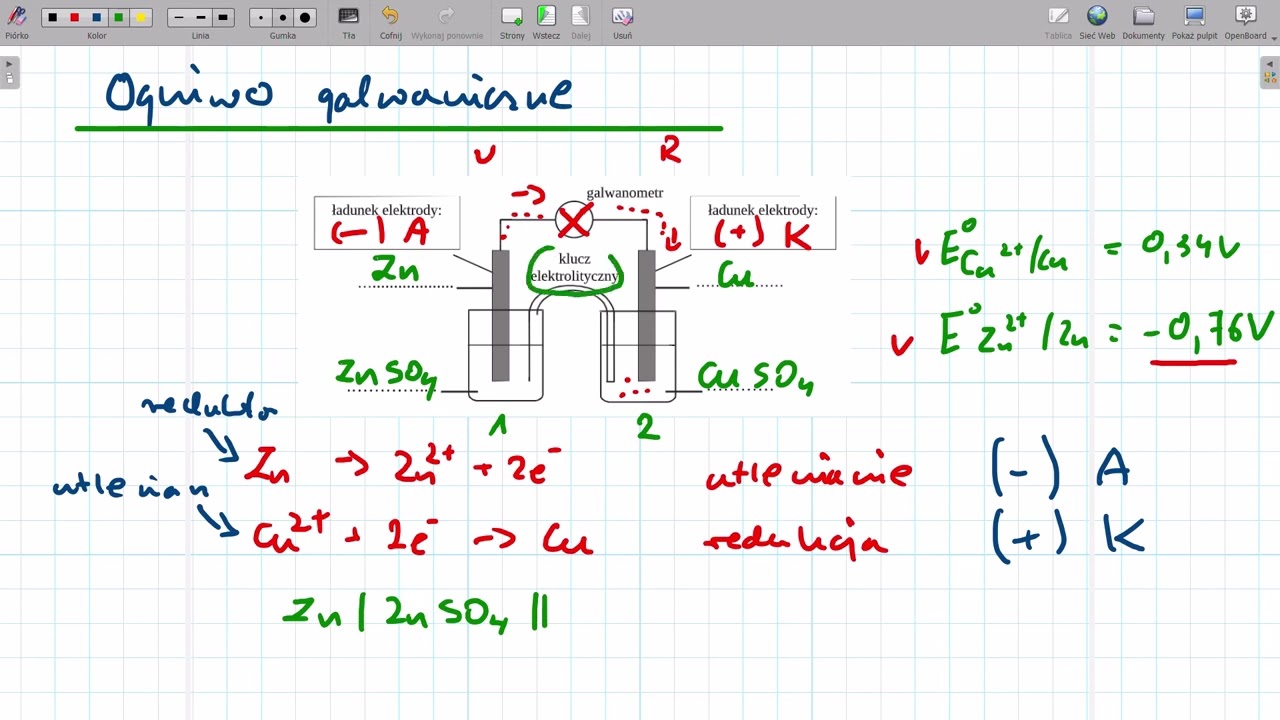 Piórko Kolor Linia Gumka Tła Cofnij Wykonaj ponownie Strony Wstecz Dalej Usuń Tablica Sieć Web Dokumenty Pokaż pulpit OpenBoard
Ogniwo galwaniczne
U R
galwanometr
ładunek elektrody: ładunek elektrody:
(-) A (+) K
klucz
elektrolityczny
Zn Cu
E⁰Cu²⁺/Cu = 0,34V
E⁰Zn²⁺/Zn = -0,76V
ZnSO₄ CuSO₄
1 2
reduktor
Zn → Zn²⁺ + 2e⁻ utlenianie (-) A
utleniacz
Cu²⁺ + 2e⁻ → Cu redukcja (+) K
Zn | ZnSO₄ ||